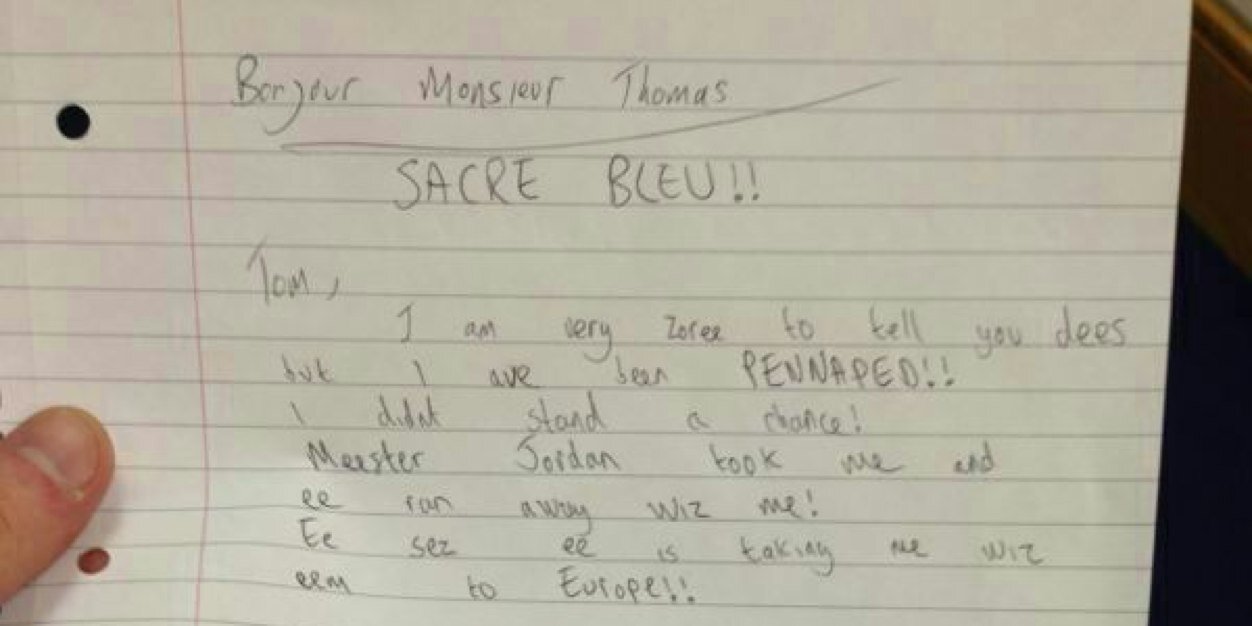 Bonjour Monsieur Thomas
SACRE BLEU!!
Tom,
I am very zoree to tell you dees
but I ave been PENNAPED!!
I didnt stand a chance!
Meester Jordan took me and
ee ran away wiz me!
Ee sez ee is taking me wiz
eem to Europe!!